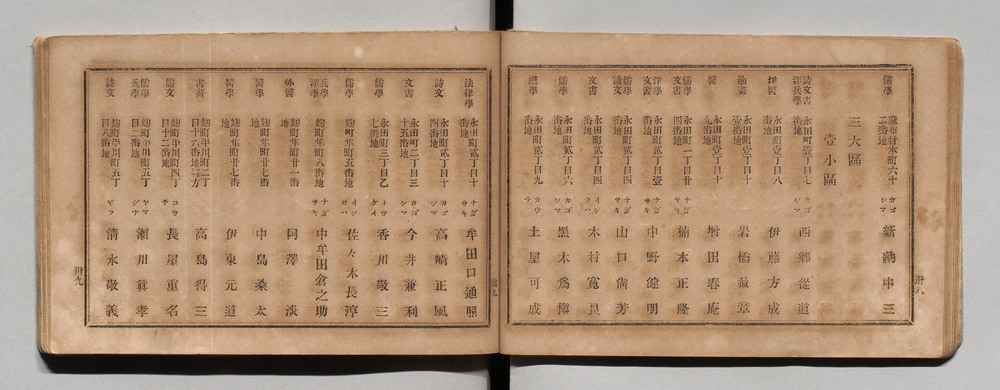 儒學 麻布材木町六十二番地 カゴシマ 新納中三
三大區
壹小區
詩文書洋兵學 永田町壹丁目七番地 カゴシマ 西鄕從道
洋醫 永田町壹丁目八番地 伊藤方成
油畵 永田町壹丁目十壹番地 岩橋
醫 永田町壹丁目十九番地 増田春庵
文書儒學 永田町一丁目廿四番地 ナガサキ 楠本正隆
洋學文書 永田町貳丁目壹番地 ナガサキ 中野健明
儒學詩文 永田町貳丁目四番地 カゴシマ 山口尚芳
文書 永田町貳丁目四番地 イシカハ 木村寛
儒學 永田町貳丁目六番地 カゴシマ 黒木爲楨
漢學 永田町貳丁目九番地 カウチ 土屋可成
卅八
法律學 永田町貳丁目十番地 ナガサキ 牟田口通照
詩文 永田町貳丁目十四番地 カゴシマ 高崎正風
文書 永田町二丁目三十五番地 シマ 今井兼利
儒學 永田町三丁目乙七番地 トウケイ 香川敬三
儒學 麹町隼町五番地 イシカハ 佐々木長淳
兵學洋學 麹町隼町八番地 ナガサキ 中牟田倉之助
外醫 麹町隼町廿一番地 岡澤淡
醫學 麹町隼町廿七番地 中島桑太
醫學 麹町隼町廿七番地 伊東元道
書畵 麹町平川町二丁目十六番地 高島得三
儒學 麹町平川町四丁目十二番地 コウチ 長屋重名
儒學兵學 麹町平川町五丁目二番地 ヤマグチ 瀬川眞孝
詩文 麹町平川町五丁目八番地 ギフ 清水敬義
卅九